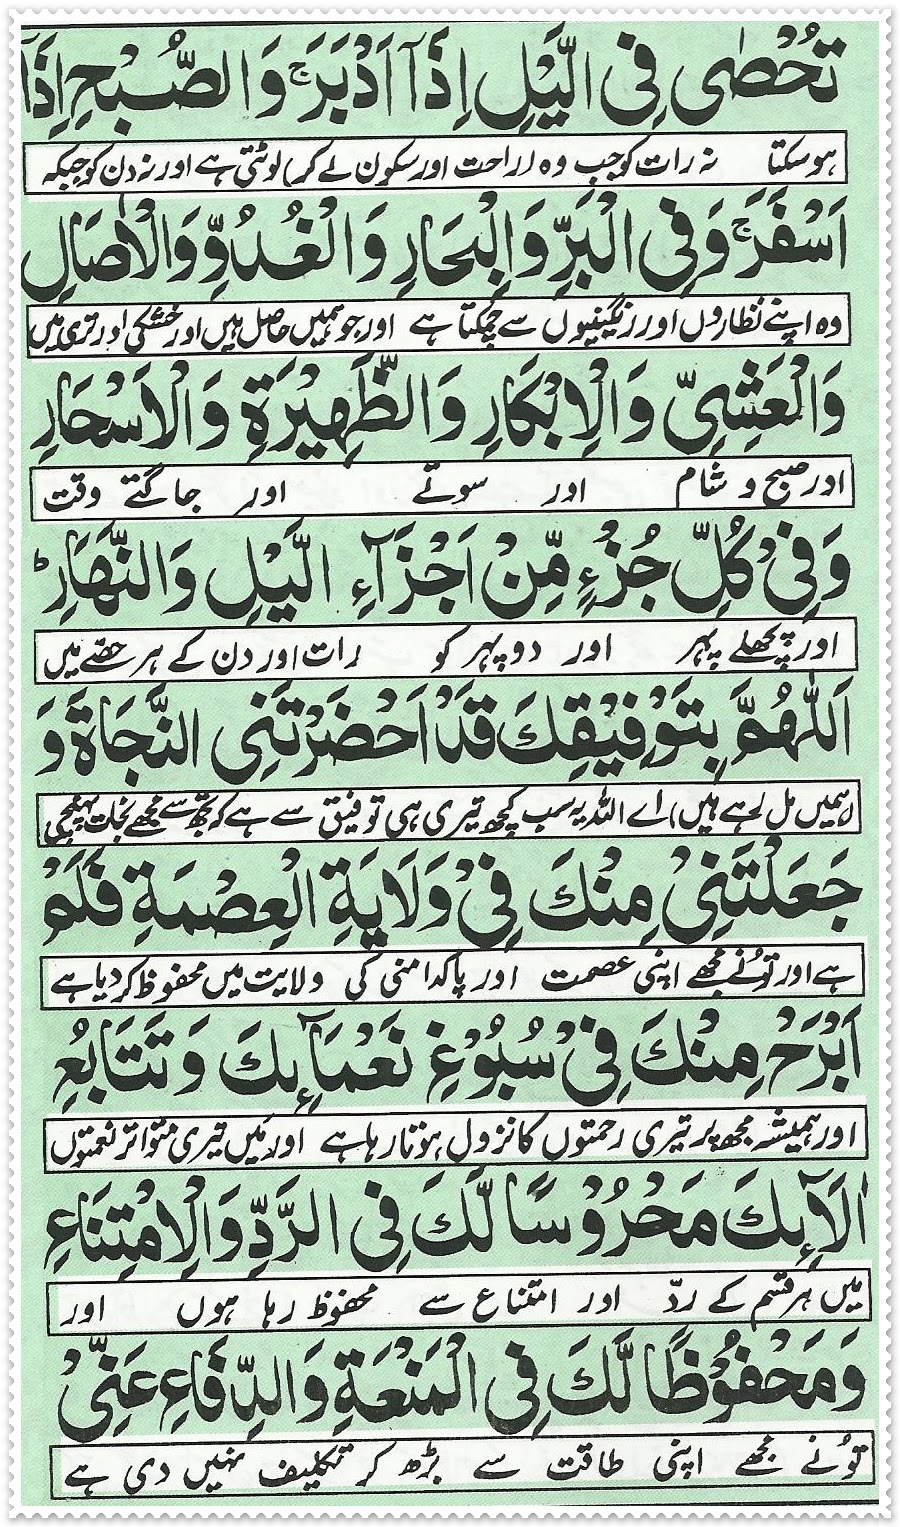 تُحْصٰى فِى الَّيْلِ اِذَآ اَدْبَرَ ج وَالصُّبْحِ اِذَآ
ہو سکتا نہ رات کو جب وہ (راحت اور سکون لے کر) لوٹتی ہے اور نہ دن کو جبکہ
اَسْفَرَ ج وَفِى الْبَرِّ وَالْبِحَارِ وَالْغُدُوِّ وَالْاٰصَالِ
وہ اپنے نظاروں اور رنگینیوں سے چمکتا ہے اور جو ہمیں حاصل ہیں اور خشکی اور تری میں
وَالْعَشِىِّ وَالْاِبْكَارِ وَالظَّهِيْرَةِ وَالْاَسْحَارِ
اور صبح و شام اور سوتے اور جاگتے وقت
وَفِىْ كُلِّ جُزْءٍ مِّنْ اَجْزَآءِ الَّيْلِ وَالنَّهَارِ ط
اور پچھلے پہر اور دوپہر کو رات اور دن کے ہر حصّے میں
اَللّٰهُمَّ بِتَوْفِيْقِكَ قَدْ اَحْضَرْتَنِى النَّجَاةَ وَ
(ہمیں مل رہے ہیں) اے اللہ یہ سب کچھ تیری ہی توفیق سے ہے کہ تجھ سے مجھے نجات پہنچی
جَعَلْتَنِىْ مِنْكَ فِىْ وَلَايَةِ الْعِصْمَةِ فَلَمْ
ہے اور تُو نے مجھے اپنی عصمت اور پاکدامنی کی ولایت میں محفوظ کر دیا ہے
اَبْرَحْ مِنْكَ فِىْ سُبُوْغِ نَعْمَآئِكَ وَتَتَابُعِ
اور ہمیشہ مجھ پر تیری رحمتوں کا نزول ہوتا رہا ہے اور میں تیری متواتر نعمتوں
اٰلَآئِكَ مَحْرُوْسًا لَّكَ فِى الرَّدِّ وَالْاِمْتِنَاعِ
میں ہر قسم کے ردّ اور امتناع سے محفوظ رہا ہوں اور
وَمَحْفُوْظًا لَّكَ فِى الْمَنْعَةِ وَالدِّفَاعِ عَنِّىْ
تُو نے مجھے اپنی طاقت سے بڑھ کر تکلیف نہیں دی ہے